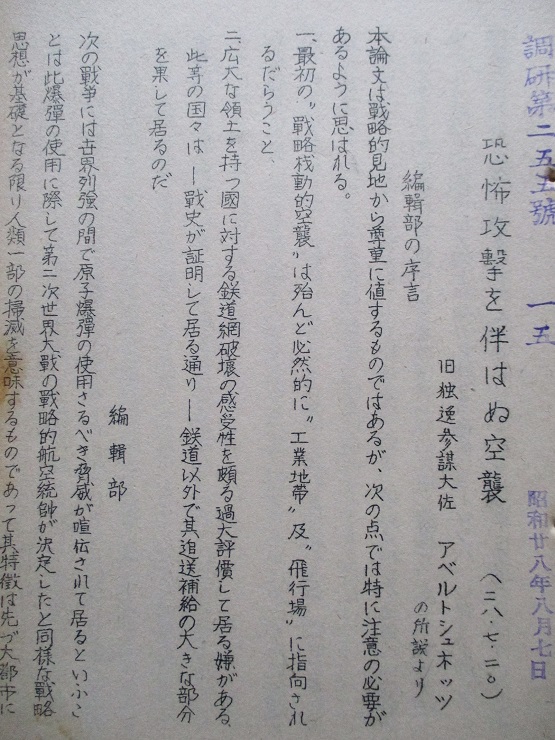 調研第二五五號　一五
昭和廿八年八月七日
恐怖攻撃を伴はぬ空襲　(二八・七・二〇)
旧独逸参謀大佐　アベルトシュネッツ
の所説より
編輯部の序言
本論文は戦略的見地から尊重に値するものではあるが、次の点では特に注意の必要が
あるように思はれる。
一、最初の〝戦略機動的空襲〟は殆んど必然的に〝工業地帯〟及〝飛行場〟に指向され
るだらうこと、
二、広大な領土を持つ國に対する鉄道網破壊の感受性を頗る過大評價して居る嫌がある、
此等の国々は ー 戦史が証明して居る通り ー 鉄道以外で其追送補給の大きな部分
を果して居るのだ
編輯部
次の戦争には世界列強の間で原子爆彈の使用さるべき脅威が喧伝されて居るといふこ
とは此爆彈の使用に際して第二次世界大戦の戦略的航空統帥が決定したと同様な戦略
思想が基礎となる限り人類一部の掃滅を意味するものであって其特徴は先づ大都市に